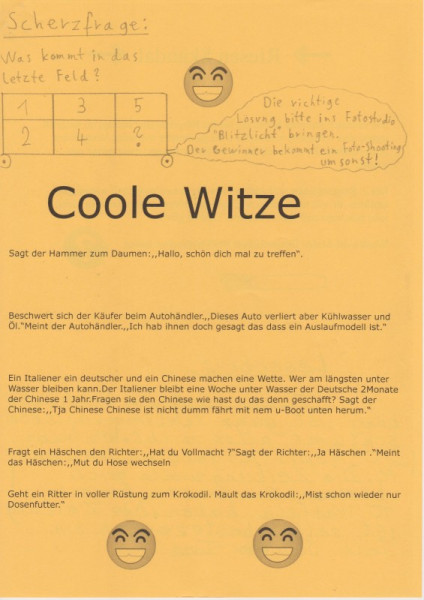 Scherzfrage:
Was kommt in das
letzte Feld?
1 3 5
2 4 ?
Die richtige
Lösung bitte ins Fotostudio
"Blitzlicht" bringen.
Der Gewinner bekommt ein Foto-Shooting
umsonst!
Coole Witze
Sagt der Hammer zum Daumen:,,Hallo, schön dich mal zu treffen“.
Beschwert sich der Käufer beim Autohändler.,,Dieses Auto verliert aber Kühlwasser und
Öl.“Meint der Autohändler.,,Ich hab ihnen doch gesagt das dass ein Auslaufmodell ist.“
Ein Italiener ein deutscher und ein Chinese machen eine Wette. Wer am längsten unter
Wasser bleiben kann.Der Italiener bleibt eine Woche unter Wasser der Deutsche 2Monate
der Chinese 1 Jahr.Fragen sie den Chinese wie hast du das denn geschafft? Sagt der
Chinese:,,Tja Chinese Chinese ist nicht dumm fährt mit nem u-Boot unten herum.“
Fragt ein Häschen den Richter:,,Hat du Vollmacht ?“Sagt der Richter:,,Ja Häschen .“Meint
das Häschen:,,Mut du Hose wechseln
Geht ein Ritter in voller Rüstung zum Krokodil. Mault das Krokodil:,,Mist schon wieder nur
Dosenfutter.“